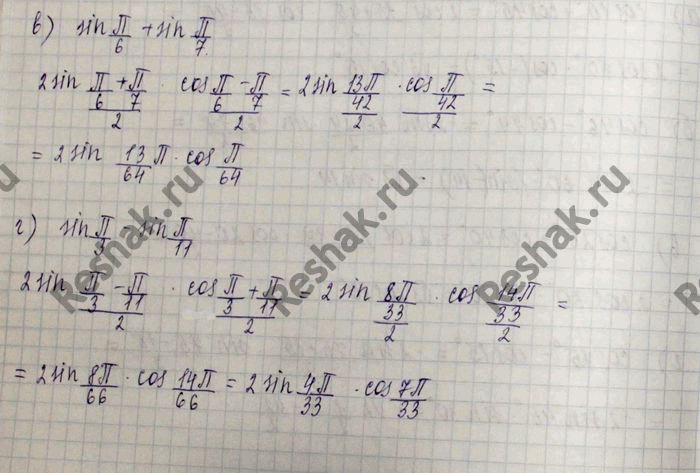 в) sin π/6 + sin π/7.
2sin (π/6 + π/7)/2 · cos (π/6 − π/7)/2 = 2sin (13π/42)/2 · cos (π/42)/2 =
= 2sin 13/64 π · cos π/64
г) sin π/3 − sin π/11
2sin (π/3 − π/11)/2 · cos (π/3 + π/11)/2 = 2sin (8π/33)/2 · cos (14π/33)/2 =
= 2sin 8π/66 · cos 14π/66 = 2sin 4π/33 · cos 7π/33
Reshak.ru
Reshak.ru
Reshak.ru
Reshak.ru